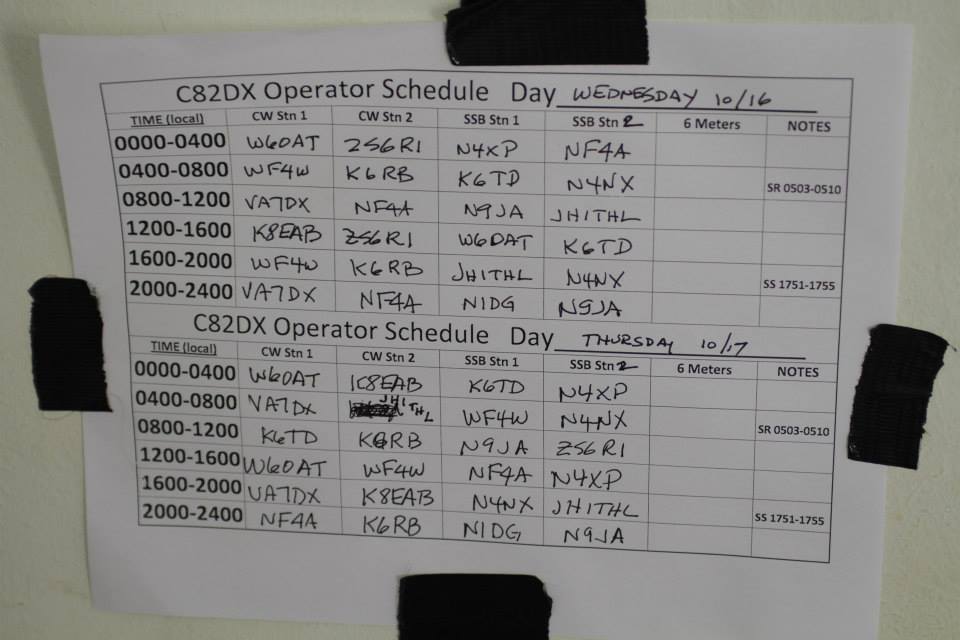 C82DX Operator Schedule Day WEDNESDAY 10/16
TIME (local) CW Stn 1 CW Stn 2 SSB Stn 1 SSB Stn 2 6 Meters NOTES
0000-0400 W6OAT ZS6RI N4XP NF4A
0400-0800 WF4W K6RB K6TD N4NX SR 0503-0510
0800-1200 VA7DX NF4A N9JA JH1THL
1200-1600 K8EAB ZS6RI W6OAT K6TD
1600-2000 WF4W K6RB JH1THL N4NX SS 1751-1755
2000-2400 VA7DX NF4A N1DG N9JA
C82DX Operator Schedule Day THURSDAY 10/17
TIME (local) CW Stn 1 CW Stn 2 SSB Stn 1 SSB Stn 2 6 Meters NOTES
0000-0400 W6OAT K8EAB K6TD N4XP
0400-0800 VA7DX JH1THL WF4W N4NX SR 0503-0510
0800-1200 K6TD K6RB N9JA ZS6RI
1200-1600 W6OAT WF4W NF4A N4XP
1600-2000 VA7DX K8EAB N4NX JH1THL SS 1751-1755
2000-2400 NF4A K6RB N1DG N9JA